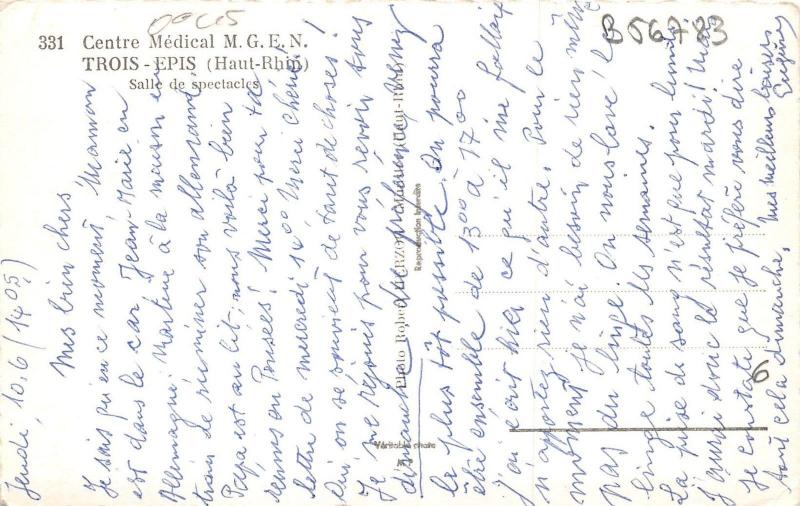 0045
B56783
331 Centre Médical M.G.E.N.
TROIS-EPIS (Haut-Rhin)
Salle de spectacles
Photo Robert
Reproduction interdite
Véritable photo
Jeudi, 10.6 (14.05)
Mes bien chers
Je sais qu'en ce moment, Maman
est dans le car, Jean-Marie en
Allemagne, Martine à la maison en
train de ruminer son allemand.
Papa est au lit, nous voilà bien
réunis en Pensées! Merci pour ta
lettre de mercredi 14.00. Merci Chérie!
Oui on se souvient de tant de choses!
Je me réjouis pour vous revoir tous
dimanche prochain, venez
le plus tôt possible. On pourra
être ensemble de 13.00 à 17.00
J'ai écrit hier ce qu'il me fallait
n'apportez rien d'autre. Pour le
moment je n'ai besoin de rien même
pas du linge. On nous lave le
linge toutes les semaines.
La prise de sang n'est que pour lundi
J'aurai donc le résultat mardi!
Je constate que je préfère vous dire
tout cela dimanche. Mes meilleurs baisers
Eugène
6